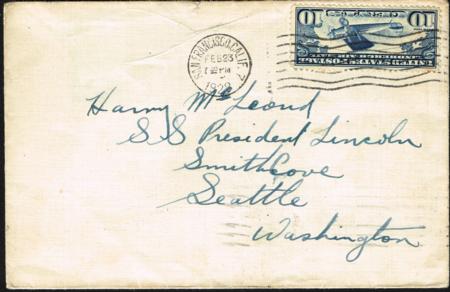 SAN FRANCISCO, CALIF.
FEB 23
PM
1928
UNITED STATES POSTAGE
LINDBERGH AIR MAIL
10 10
Harry McLeond
S S President Lincoln
Smith Cove
Seattle
Washington